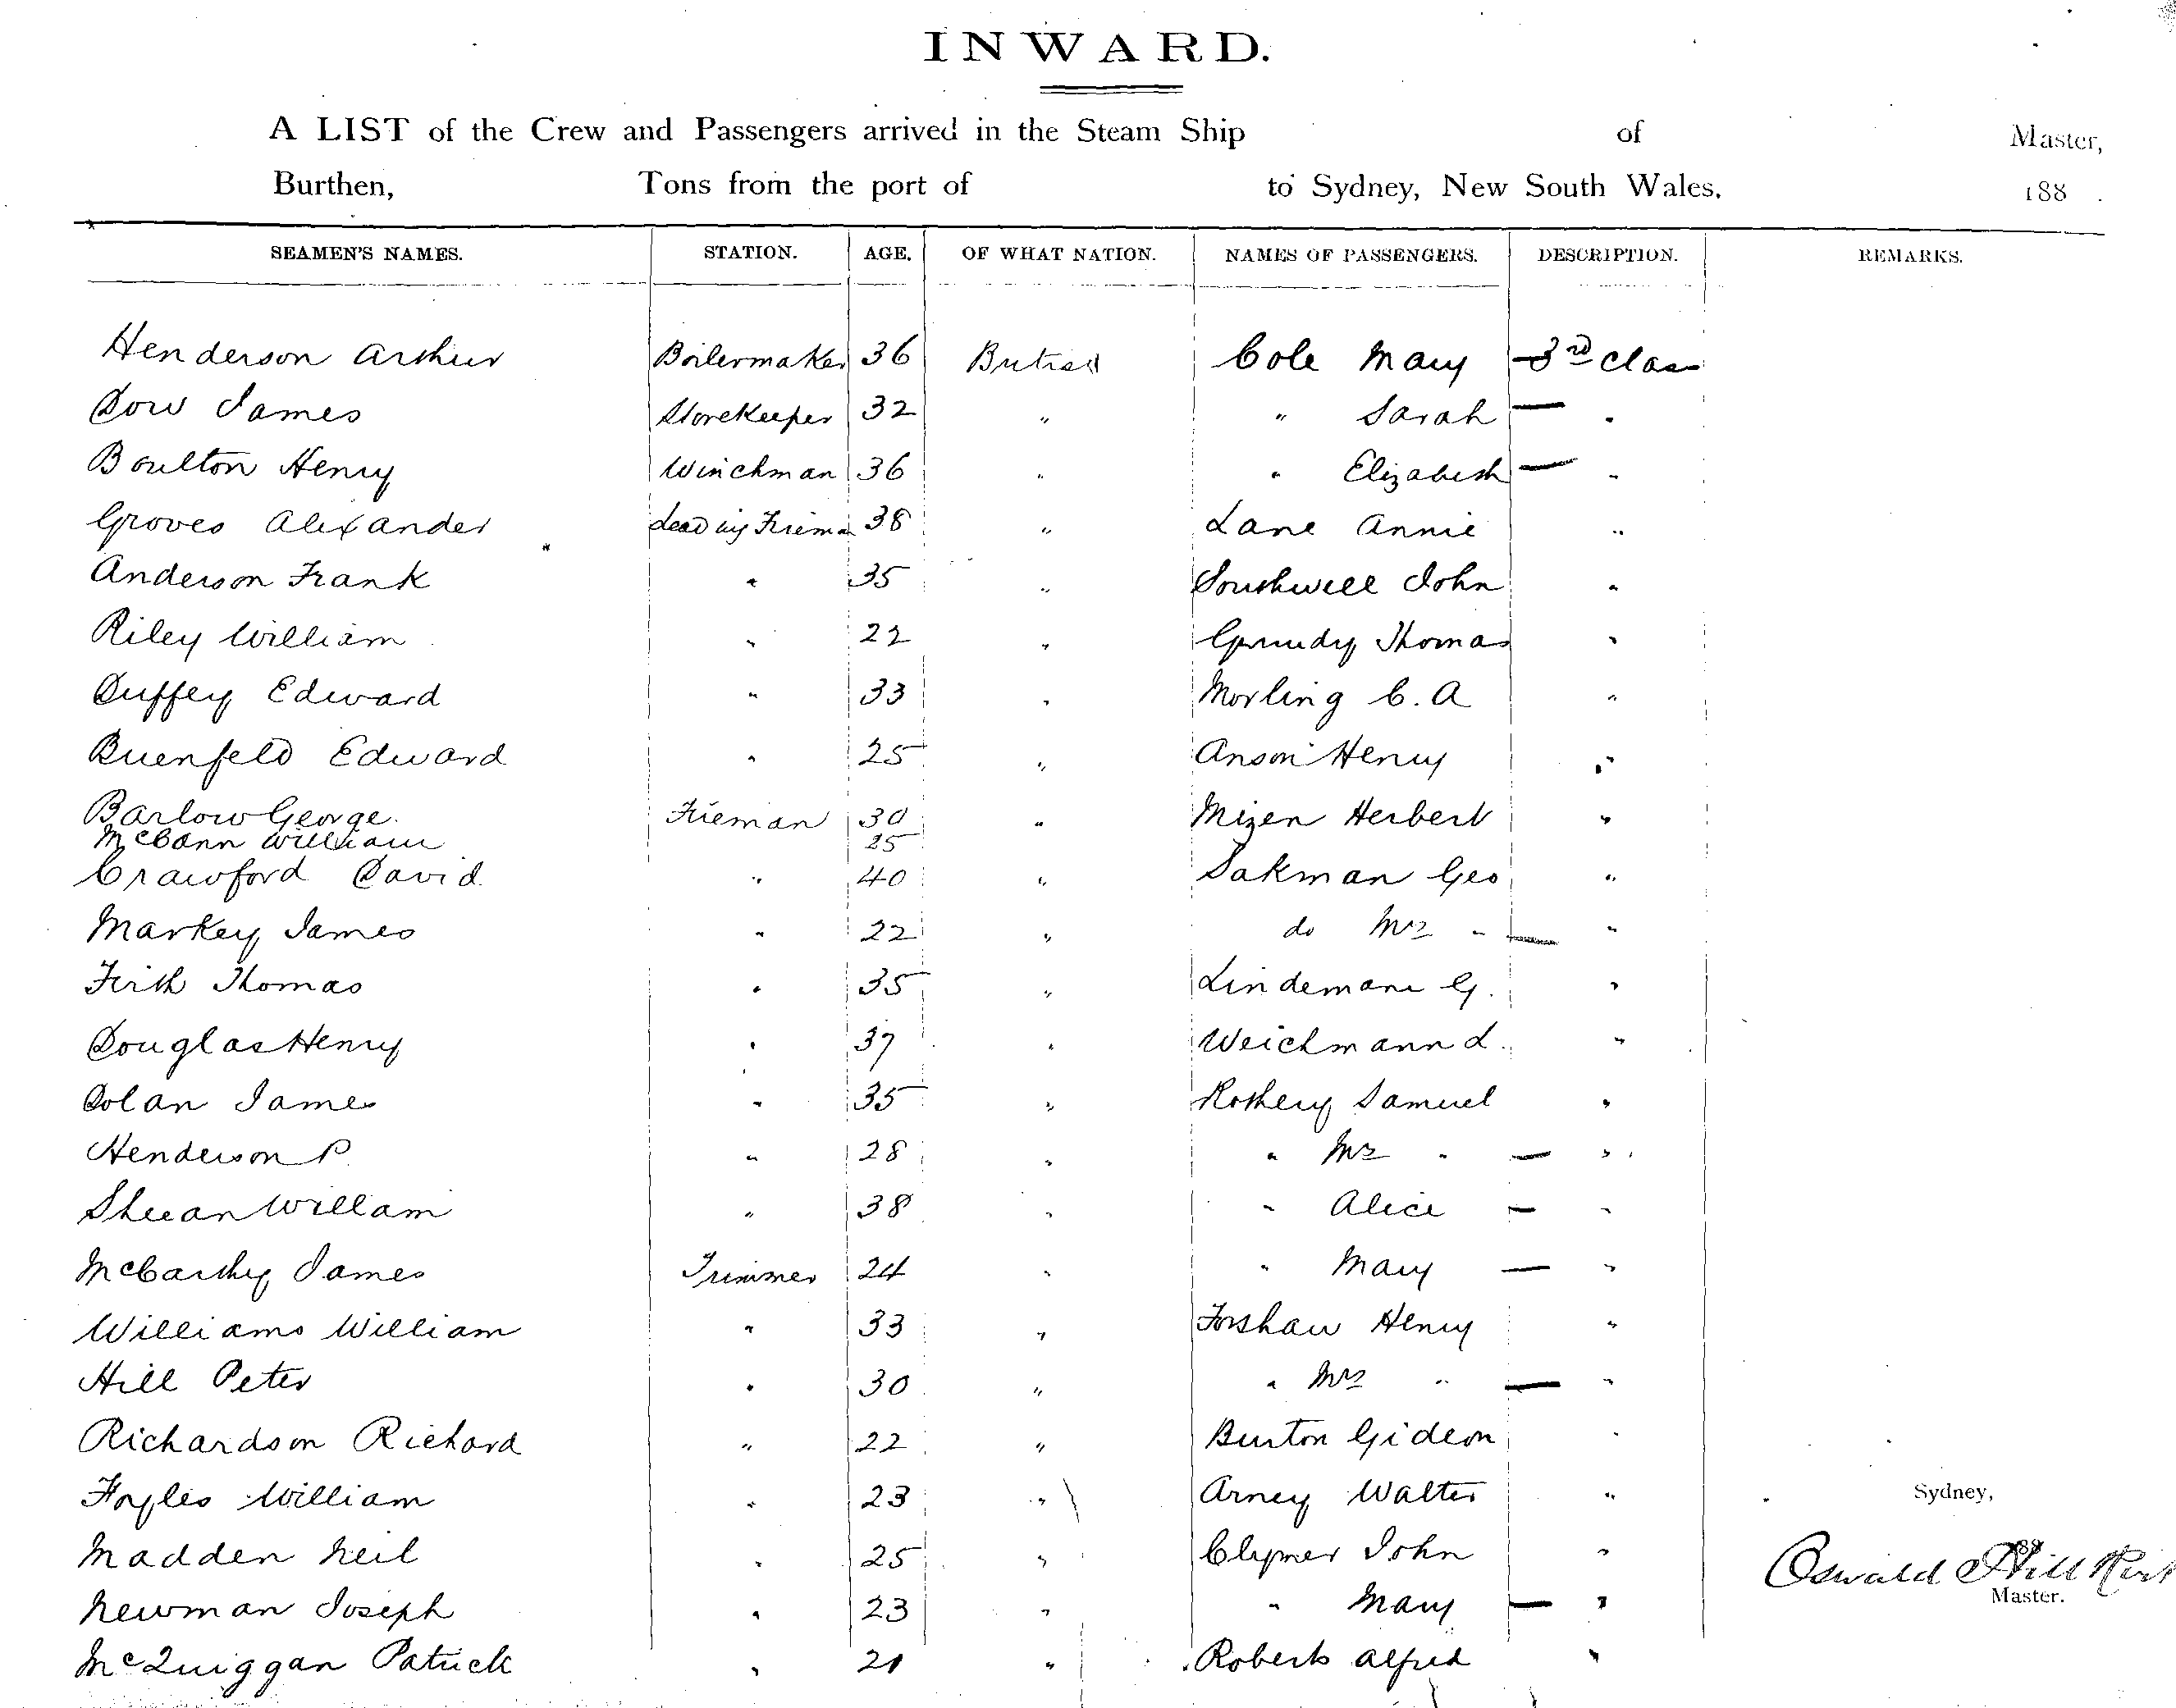 INWARD.
A LIST of the Crew and Passengers arrived in the Steam Ship of Master,
Burthen, Tons from the port of to Sydney, New South Wales. 188 .
SEAMEN'S NAMES. STATION. AGE. OF WHAT NATION. NAMES OF PASSENGERS. DESCRIPTION. REMARKS.
Henderson Arthur Boilermaker 36 British Cole Mary 3rd Class
Dow James Storekeeper 32 " " Sarah — "
Boulton Henry Winchman 36 " " Elizabeth — "
Groves Alexander Leading Firema 38 " Lane Annie "
Anderson Frank " 35 " Southwell John "
Riley William " 22 " Grundy Thomas "
Duffey Edward " 33 " Morling C. A "
Buenfeld Edward " 25 " Anson Henry "
Barlow George Fireman 30 " Mizen Herbert "
McCann William 25
Crawford David " 40 " Sakman Geo "
Markey James " 22 " do Mrs " — "
Frith Thomas " 35 " Lindemann G. "
Douglas Henry " 37 " Weichmann L. "
Dolan James " 35 " Rothery Samuel "
Henderson P. " 28 " " Mrs " — "
Sheean William " 38 " " Alice — "
McCarthy James Trimmer 24 " " Mary — "
Williams William " 33 " Forshaw Henry "
Hill Peter " 30 " " Mrs " — "
Richardson Richard " 22 " Burton Gideon "
Foyles William " 23 " Arney Walter "
Sydney,
Madden Neil " 25 " Clymer John "
188
Oswald Hill
Master.
Newman Joseph " 23 " " Mary — "
McQuiggan Patrick " 21 " Roberts Alfred "